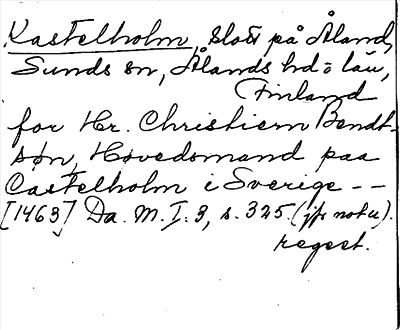 Kastelholm, slott på Åland,
Sunds sn, Ålands hd o län,
Finland
for Hr. Christiern Bendt-
søn, Høvedsmand paa
Castelholm i Sverige --
[1463] Da. M. I. 3, s. 325 (jfr noten).
regest.